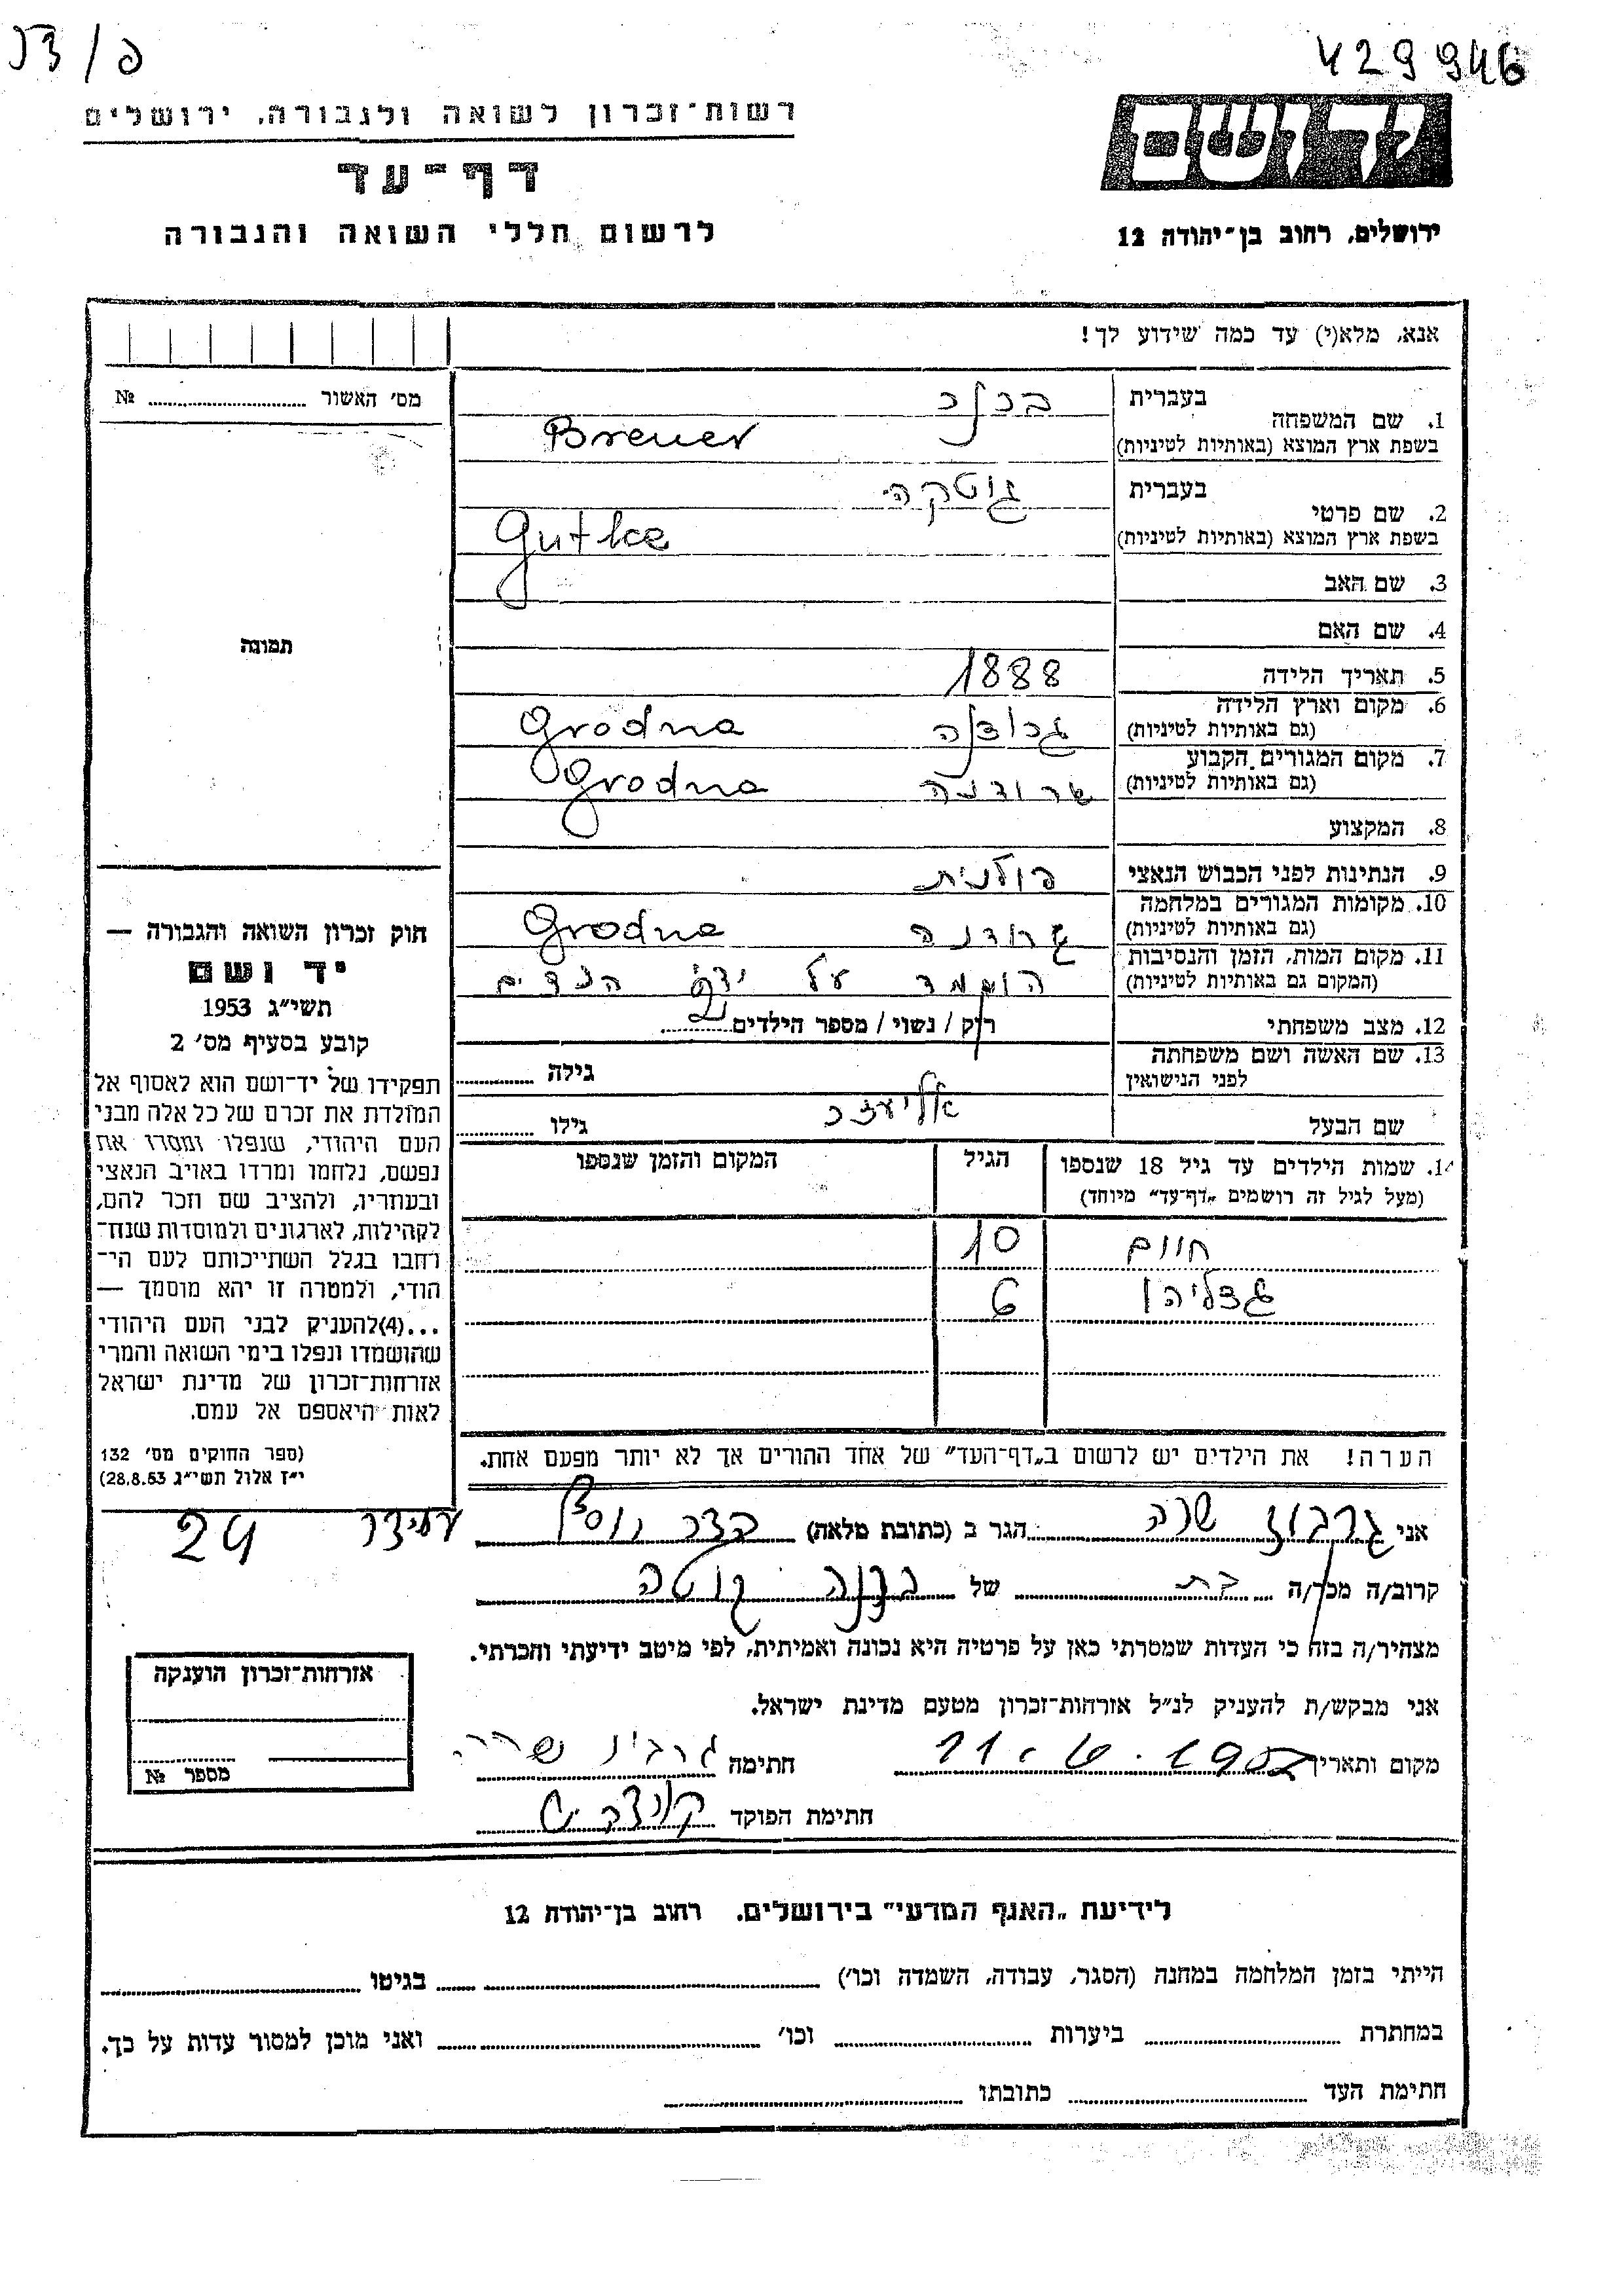 429946
רשות־זכרון לשואה ולגבורה, ירושלים
דף־עד
לרשום חללי השואה והגבורה
ירושלים, רחוב בן־יהודה 12
אנא, מלא(י) עד כמה שידוע לך!
מס׳ האשור №
תמונה
חוק זכרון השואה והגבורה —
יד ושם
תשי״ג 1953
קובע בסעיף מס׳ 2
תפקידו של יד־ושם הוא לאסוף אל
המולדת את זכרם של כל אלה מבני
העם היהודי, שנפלו ומסרו את
נפשם, נלחמו ומרדו באויב הנאצי
ובעוזריו, ולהציב שם וזכר להם,
לקהילות, לארגונים ולמוסדות שנח־
רחבו בגלל השתייכותם לעם הי־
הודי, ולמטרה זו יהא מוסמך —
...(4)להעניק לבני העם היהודי
שהושמדו ונפלו בימי השואה והמרי
אזרחות־זכרון של מדינת ישראל
לאות היאספם אל עמם.
(ספר החוקים מס׳ 132
י״ז אלול תשי״ג 28.8.53)
1. שם המשפחה בעברית
בשפת ארץ המוצא (באותיות לטיניות) Breuer
2. שם פרטי בעברית גוטקה
בשפת ארץ המוצא (באותיות לטיניות) Gutke
3. שם האב
4. שם האם
5. תאריך הלידה 1888
6. מקום וארץ הלידה גרודנה Grodna
(גם באותיות לטיניות)
7. מקום המגורים הקבוע גרודנה Grodna
(גם באותיות לטיניות)
8. המקצוע
9. הנתינות לפני הכבוש הנאצי פולנית
10. מקומות המגורים במלחמה גרודנה Grodna
(גם באותיות לטיניות)
11. מקום המות, הזמן והנסיבות
(המקום גם באותיות לטיניות) הושמד על ידי
12. מצב משפחתי רוק / נשוי / מספר הילדים 2
13. שם האשה ושם משפחתה
לפני הנישואין גילה
שם הבעל אליעזר גילו
14. שמות הילדים עד גיל 18 שנספו הגיל המקום והזמן שנספו
(מעל לגיל זה רושמים „דף־עד״ מיוחד)
חיים 10
גדליהו 6
הערה! את הילדים יש לרשום ב„דף־העד״ של אחד ההורים אך לא יותר מפעם אחת.
אני שרה הגר ב (כתובת מלאה) 24
קרוב/ה מכר/ה בת של
מצהיר/ה בזה כי העדות שמסרתי כאן על פרטיה היא נכונה ואמיתית, לפי מיטב ידיעתי והכרתי.
אני מבקש/ת להעניק לנ״ל אזרחות־זכרון מטעם מדינת ישראל.
מקום ותאריך חתימה שרה
חתימת הפוקד
אזרחות־זכרון הוענקה
מספר №
לידיעת „האגף המדעי״ בירושלים, רחוב בן־יהודה 12
הייתי בזמן המלחמה במחנה (הסגר, עבודה, השמדה וכו׳) בגיטו
במחתרת ביערות וכו׳ ואני מוכן למסור עדות על כך.
חתימת העד כתובתו